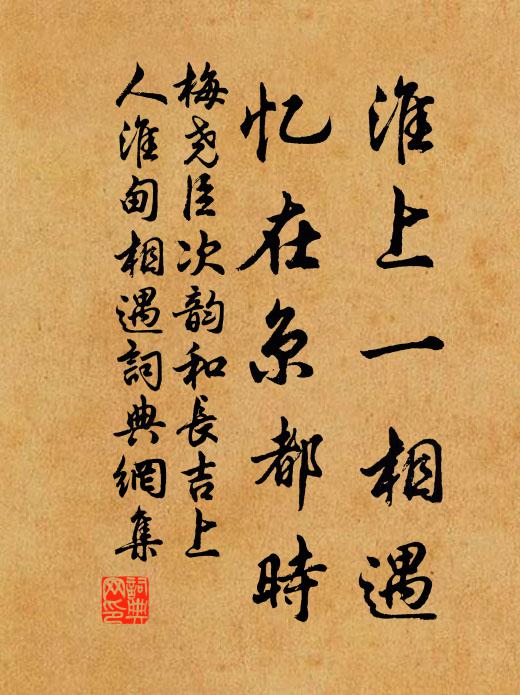 淮上一相遇
忆在京都時
梅尧臣次韵和長吉上
人淮甸相遇詞典網集
詞典
网印